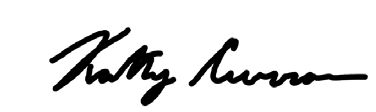 Kathy Curran